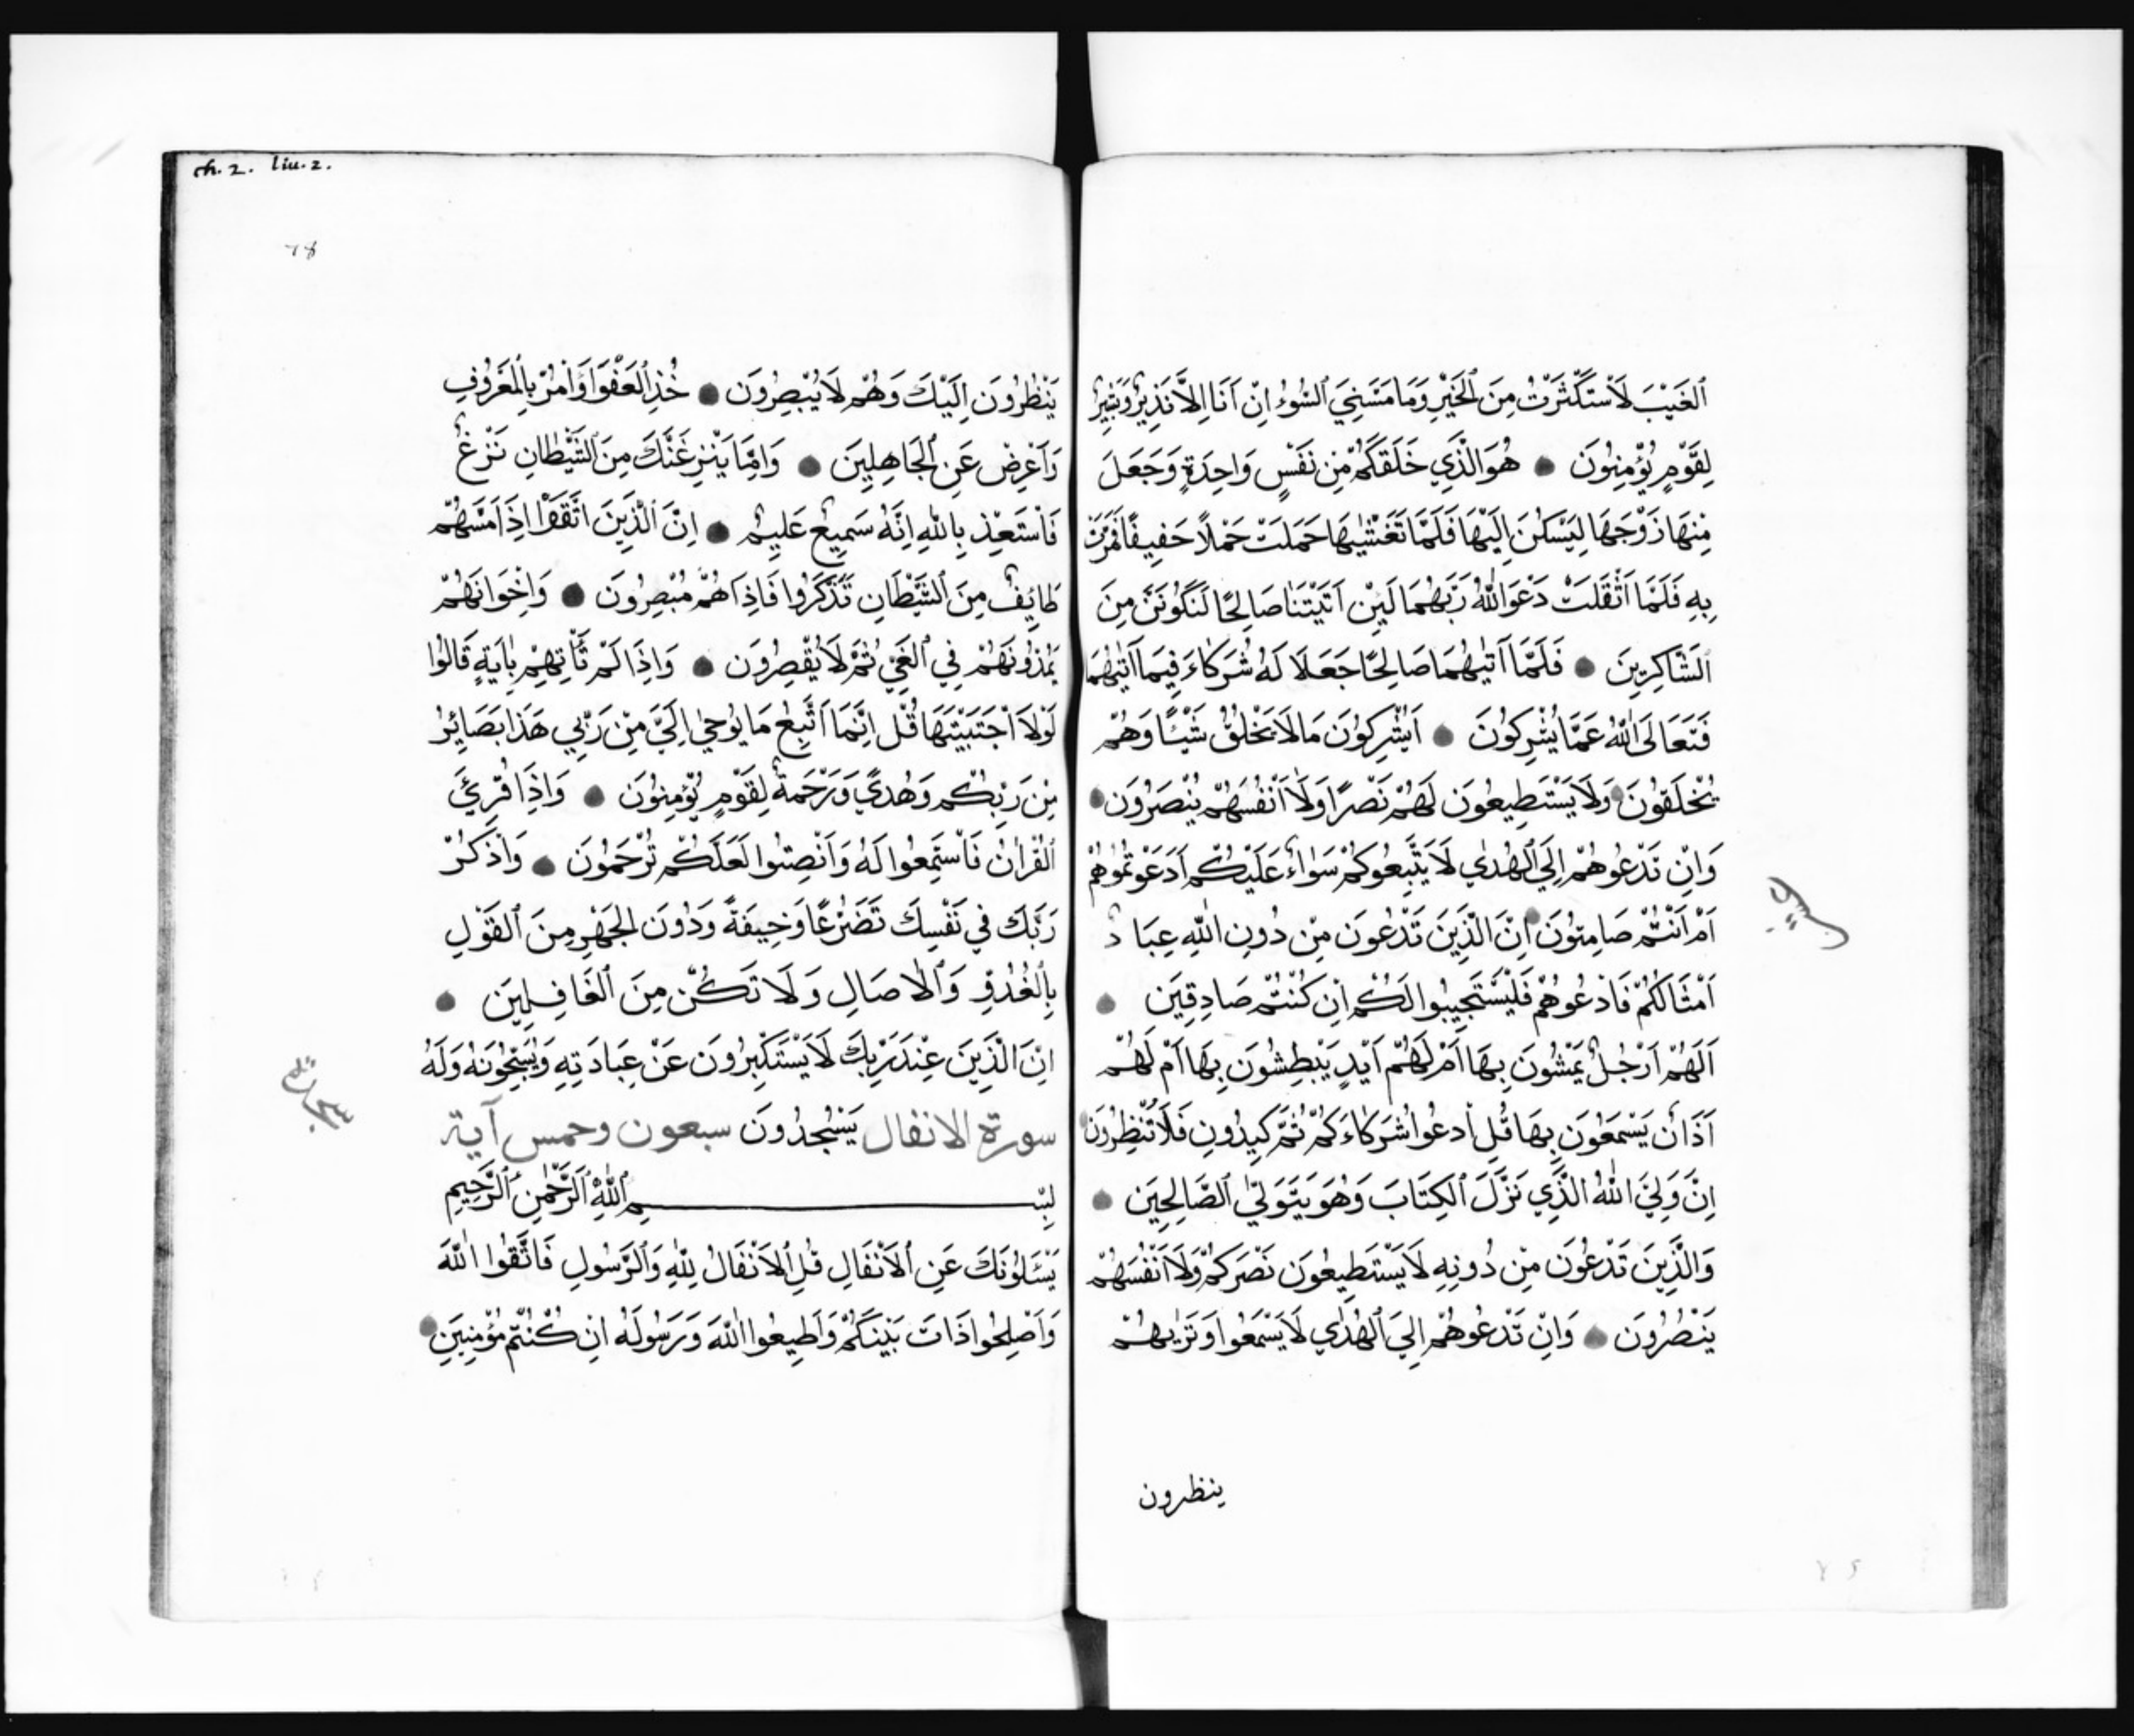 ٱلغَيْبَ لَاَسْتَكْثَرْتُ مِنَ ٱلْخَيْرِ وَمَا مَسَّنِيَ ٱلسُّوۤءُ اِنْ اَنَا اِلَّا نَذِيرٌ وَبَشِيرٌ
لِقَوْمٍ يُؤْمِنُونَ ● هُوَ الَّذِي خَلَقَكُمْ مِنْ نَفْسٍ وَاحِدَةٍ وَجَعَلَ
مِنْهَا زَوْجَهَا لِيَسْكُنَ اِلَيْهَا فَلَمَّا تَغَشّٰيهَا حَمَلَتْ حَمْلًا خَفِيفًا فَمَرَّتْ
بِهِ فَلَمَّا اَثْقَلَتْ دَعَوَا اللّٰهَ رَبَّهُمَا لَئِنْ اٰتَيْتَنَا صَالِحًا لَنَكُونَنَّ مِنَ
ٱلشَّاكِرِينَ ● فَلَمَّا اٰتٰيهُمَا صَالِحًا جَعَلَا لَهُ شُرَكَاءَ فِيمَا اٰتٰيهُمَا
فَتَعَالَى اللّٰهُ عَمَّا يُشْرِكُونَ ● اَيُشْرِكُونَ مَا لَا يَخْلُقُ شَيْئًا وَهُمْ
يُخْلَقُونَ ● وَلَا يَسْتَطِيعُونَ لَهُمْ نَصْرًا وَلَا اَنْفُسَهُمْ يَنْصُرُونَ ●
وَاِنْ تَدْعُوهُمْ اِلَى ٱلْهُدٰي لَا يَتَّبِعُوكُمْ سَوَاءٌ عَلَيْكُمْ اَدَعَوْتُمُوهُمْ
اَمْ اَنْتُمْ صَامِتُونَ ● اِنَّ الَّذِينَ تَدْعُونَ مِنْ دُونِ اللّٰهِ عِبَادٌ
اَمْثَالُكُمْ فَادْعُوهُمْ فَلْيَسْتَجِيبُوا لَكُمْ اِنْ كُنْتُمْ صَادِقِينَ ●
اَلَهُمْ اَرْجُلٌ يَمْشُونَ بِهَا اَمْ لَهُمْ اَيْدٍ يَبْطِشُونَ بِهَا اَمْ لَهُمْ
اٰذَانٌ يَسْمَعُونَ بِهَا قُلِ اُدْعُوا شُرَكَاءَكُمْ ثُمَّ كِيدُونِ فَلَا تُنْظِرُونِ ●
اِنَّ وَلِيِّيَ اللّٰهُ الَّذِي نَزَّلَ ٱلكِتَابَ وَهُوَ يَتَوَلَّى ٱلصَّالِحِينَ ●
وَالَّذِينَ تَدْعُونَ مِنْ دُونِهِ لَا يَسْتَطِيعُونَ نَصْرَكُمْ وَلَا اَنْفُسَهُمْ
يَنْصُرُونَ ● وَاِنْ تَدْعُوهُمْ اِلَى ٱلْهُدٰي لَا يَسْمَعُوا وَتَرٰيهُمْ
ينظرون
ch. 2. liu. 2.
يَنْظُرُونَ اِلَيْكَ وَهُمْ لَا يُبْصِرُونَ ● خُذِ ٱلْعَفْوَ وَأْمُرْ بِالْمَعْرُوفِ
وَاَعْرِضْ عَنِ ٱلْجَاهِلِينَ ● وَاِمَّا يَنْزَغَنَّكَ مِنَ ٱلشَّيْطَانِ نَزْغٌ
فَاسْتَعِذْ بِاللّٰهِ اِنَّهُ سَمِيعٌ عَلِيمٌ ● اِنَّ ٱلَّذِينَ اتَّقَوْا اِذَا مَسَّهُمْ
طَائِفٌ مِنَ ٱلشَّيْطَانِ تَذَكَّرُوا فَاِذَا هُمْ مُبْصِرُونَ ● وَاِخْوَانُهُمْ
يَمُدُّونَهُمْ فِي ٱلْغَيِّ ثُمَّ لَا يُقْصِرُونَ ● وَاِذَا لَمْ تَأْتِهِمْ بِاٰيَةٍ قَالُوا
لَوْلَا اجْتَبَيْتَهَا قُلْ اِنَّمَا اَتَّبِعُ مَا يُوحٰي اِلَيَّ مِنْ رَبِّي هَذَا بَصَائِرُ
مِنْ رَبِّكُمْ وَهُدًي وَرَحْمَةٌ لِقَوْمٍ يُؤْمِنُونَ ● وَاِذَا قُرِئَ
ٱلْقُرْاٰنُ فَاسْتَمِعُوا لَهُ وَاَنْصِتُوا لَعَلَّكُمْ تُرْحَمُونَ ● وَاذْكُرْ
رَبَّكَ فِي نَفْسِكَ تَضَرُّعًا وَخِيفَةً وَدُونَ الْجَهْرِ مِنَ ٱلْقَوْلِ
بِالْغُدُوِّ وَٱلْاٰصَالِ وَلَا تَكُنْ مِنَ ٱلْغَافِلِينَ ●
اِنَّ الَّذِينَ عِنْدَ رَبِّكَ لَا يَسْتَكْبِرُونَ عَنْ عِبَادَتِهِ وَيُسَبِّحُونَهُ وَلَهُ
سورة الانفال يَسْجُدُونَ سبعون وخمس آية
بِسْمِ ٱللّٰهِ ٱلرَّحْمٰنِ ٱلرَّحِيمِ
يَسْئَلُونَكَ عَنِ ٱلْاَنْفَالِ قُلِ ٱلْاَنْفَالُ لِلّٰهِ وَٱلرَّسُولِ فَاتَّقُوا اللّٰهَ
وَاَصْلِحُوا ذَاتَ بَيْنِكُمْ وَاَطِيعُوا اللّٰهَ وَرَسُولَهُ اِنْ كُنْتُمْ مُؤْمِنِينَ ●